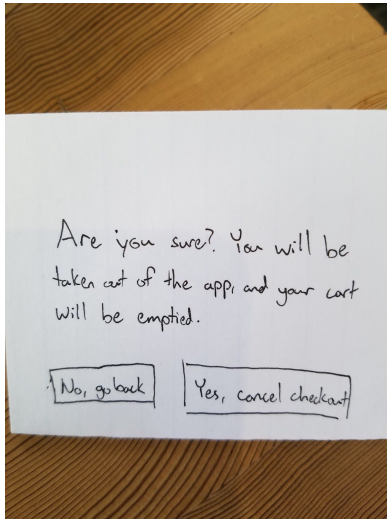 Are you sure? You will be
taken out of the app, and your cart
will be emptied.
No, go back
Yes, cancel checkout